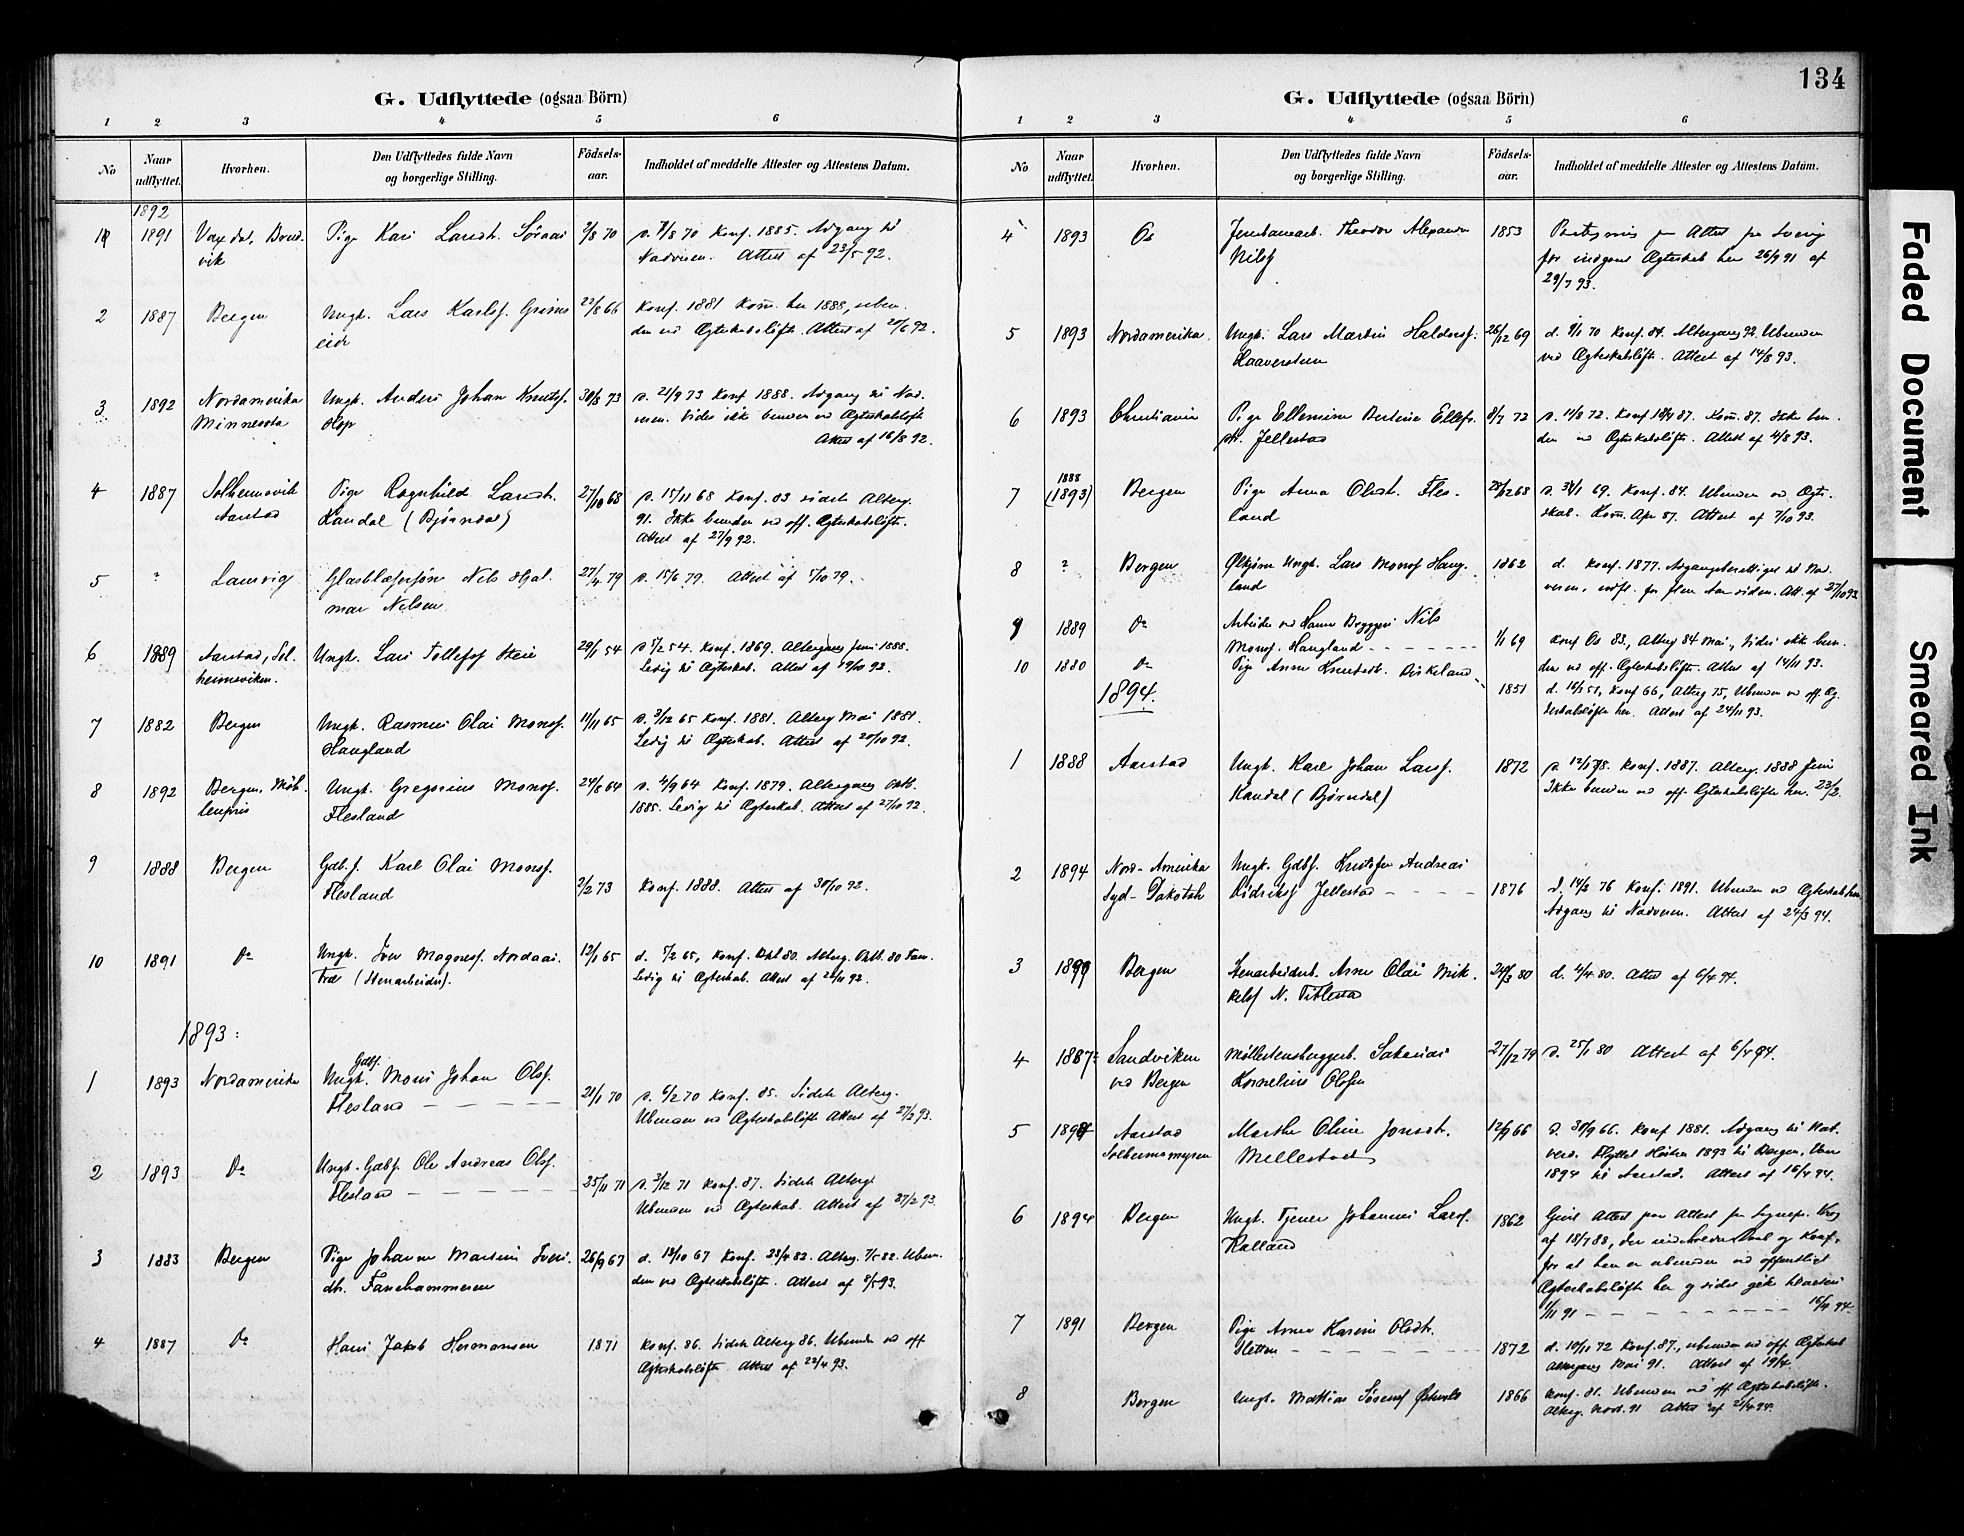 134
G. Udflyttede (ogsaa Börn)
1 2 3 4 5 6
No
Naar udflyttet.
Hvorhen.
Den Udflyttedes fulde Navn og borgerlige Stilling.
Födsels-aar.
Indholdet af meddelte Attester og Attestens Datum.
1892
1891 Pige Kari Larsdt. 2/8 70 Konf. 1885. Adgang til
vik Attest af 23/5 92.
2 1887 Bergen Ungk. Lars Karlsf. Grims 22/8 66 Konf. 1881 Kom. her 1888, uben-
eide den ved Ægteskabsløfte. Attest af
3 1892 Nordamerika Ungk. Anders Johan Knutsf. 30/8 73 d. 21/9 73 Konf 1888. Adgang til Nad-
Minnesota Hop veren. Vides ikke bunden ved Ægteskabsløfte
Attest af 16/8 92.
4 1887 Solheimsvik Pige Ragnhild Larsdt. 27/10 68 d. 15/11 68 Konf. 83 sidste Alterg.
Aarstad Kandal (Bjørndal) 91. Ikke bunden ved off. Ægteskabsløfte.
Attest af 27/9 92.
5 ? Nils Hjal- 27/4 79 d. 15/6 79. Attest af
mar Nelsen
6 1889 Aarstad, Sol- Ungk. Lars Tollefsf 29/1 54 Konf. 1869. Altergang Juni 1888.
heimsviken. Ledig til Ægteskab. Attest af
7 1882 Bergen Ungk. Rasmus Olai Monsf. 11/11 65 d. 3/12 65 Konf. 1881. Alterg Mai 1881.
Haugland Ledig til Ægteskab. Attest af 20/10 92.
8 1892 Bergen, Møh- Ungk. Gregorius Monsf. 24/8 64 d. 4/9 64 Konf. 1879. Altergang Okt.
lenpris Flesland 1885. Ledig til Ægteskab. Attest af 27/10 92.
9 1888 Bergen Gdb.f. Karl Olai Monsf.
Flesland 2/2 73 Konf. 1888. Attest af 30/10 92.
10 1891 Do Ungk. Iver Magnesf. Nordaas- 12/1 65 d. 5/2 65, Konf. Alterg. Okt. 80
Træ (Stenarbeider). Ledig til Ægteskab. Attest af
1893:
Gdbf.
1 1893 Nordamerika Ungk. Mons Johan Olsf. 21/1 70 d. 6/2 70 Konf. 85. Sidste Alterg.
Flesland Ubunden ved Ægteskabsløfte Attest af 27/2 93.
2 1893 Do Ungk. Gdbf. Ole Andreas Olsf.
Flesland 25/11 71 d. 3/12 71 Konf. 87. Sidste Alterg.
Ubunden ved Ægteskab. Attest af 27/2 93.
3 1883 Bergen Pige Johanne Martine Ivers- 26/9 67 d. 13/10 67 Konf. 23/4 82. Alterg. 7/5 82. Ubun-
dtr. Fanehammeren den ved Ægteskabsløfte. Attest af 8/5 93.
4 1887 Do Hans Jakob Hermansen 1871 Konf. 86. Sidste Alterg 86. Ubunden ved off
Ægteskabsløfte. Attest af 22/4 93.
G. Udflyttede (ogsaa Börn)
1 2 3 4 5 6
No
Naar udflyttet.
Hvorhen.
Den Udflyttedes fulde Navn og borgerlige Stilling.
Födsels-aar.
Indholdet af meddelte Attester og Attestens Datum.
4 1893 Os Jernbanearb. Theodor 1853 Attest fra Sverig
Nilsf for indgaaet Ægteskab her 26/9 91 af
29/7 93.
5 1893 Nordamerika. Ungk. Lars Martin Haldorsf. 26/12 69 d. 9/1 70 Konf. 84. Altergang 92. Ubunden
Haaverstun ved Ægteskabsløfte. Attest af 14/8 93.
6 1893 Christiania Pige Ellemine Bertine Ellefs- 8/7 72 d. 11/8 72. Konf 87. Kom. 87. Ikke bun-
dtr. Jellestad den ved Ægteskabsløfte. Attest af 4/8 93.
1888
7 (1893) Bergen Pige Anna Olsdt. Fles- 28/12 68 69. Konf. 84. Ubunden ved Ægte-
land skab. Kom. Apr 87. Attest af 7/10 93.
8 ? Bergen Ungk. Lars Monsf Haug- 1862 d. Konf. 1877. Adgangsberettiget til Nad-
land veren, udfl. for flere Aar siden. Att. af 27/10 93
9 1889 Do Arbeider ved Hansa Bryggeri Nils
Monsf. Haugland 1/1 69 Konf Os 83, Alterg 84 Mai, Vides ikke bun-
den ved off. Ægteskabsløfte. Attest af 14/11 93.
10 1880 Do Pige Anne Knudsdt. Birkeland 1851 Konf 66, Alterg 75, Ubunden ved off. Æg-
teskabsløfte her. Attest af 24/11 93.
1894.
1 1888 Aarstad Ungk. Karl Johan Larsf. 1872 Konf. 1887. Alterg. 1888 Juni
Kandal (Bjørndal) Ikke bunden ved off. Ægteskabsløfte her. 23/2.
2 1894 Nord-Amerika Ungk. Gdbf. Kristofer Andreas
Syd-Dakotah Didriksf Jellestad 1876 d. 14/2 76 Konf. 1891. Ubunden ved Ægteskab her
Adgang til Nadveren. Attest af 24/3 94.
3 Bergen Stenarbeiderb. Arne Olai Mik- 24/3 80 d. 4/4 80. Attest af 6/4 94.
kelsf N. Titlestad
4 1887 Sandviken Sakarias 27/12 79 d. 25/1 80 Attest af 6/4 94.
ved Bergen Kornelius Olsen
5 1894 Aarstad Marthe Oline Jonsdt. 12/9 66 d. 30/9 66. Konf 1881. Adgang til Nat-
Solheimsmyren Mellestad verd. Flyttet Høsten 1893 til Bergen, Vaar
1894 til Aarstad. Attest af 16/4 94.
6 1894 Bergen Ungk. Tjener Johannes Larsf. 1862 Givet Attest paa Attest fra Sognepr.
Kalland af 18/7 88, der indeholder Daab og Konf,
for at han er ubunden ved offentligt
Ægteskabsløfte her og sidst gik til Alters
1/11 91 16/4 94.
7 1891 Bergen Pige Anna Karine Olsdt.
Sletten 1872 d. 10/11 72 Konf. 87., ubunden ved off. Ægteskab
Altergang Mai 91. Attest af 19/4.
8 Bergen Ungk. Mathias Sørensf 1866 Konf. 81. Ubunden ved off Ægteskabsløfte.
Alterg. Novb. 91 Attest af 21/4 94.
Faded Document
Smeared Ink